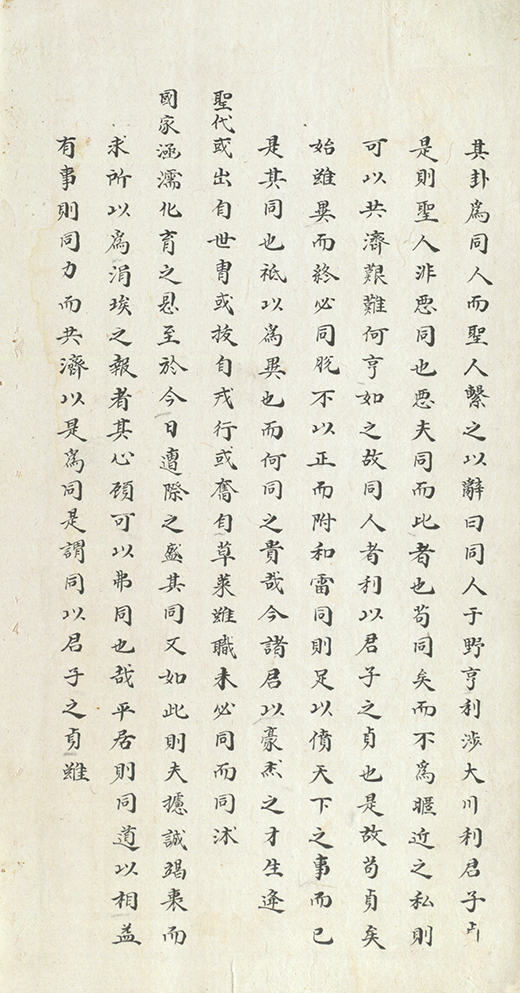 其卦為同人而聖人繫之以辭曰同人于野亨利涉大川利君子貞
是則聖人非惡同也惡夫同而比者也苟同矣而不為暱近之私則
可以共濟艱難何亨如之故同人者利以君子之貞也是故苟貞矣
始雖異而終必同脫不以正而附和雷同則足以僨天下之事而已
是其同也祗以為異也而何同之貴哉今諸君以豪杰之才生逢
聖代或出自世胄或拔自戎行或奮自草萊雖職未必同而同沐
國家涵濡化育之恩至於今日遭際之盛其同又如此則夫攄誠竭衷而
求所以為涓埃之報者其心顧可以弗同也哉平居則同道以相益
有事則同力而共濟以是為同是謂同以君子之貞雖